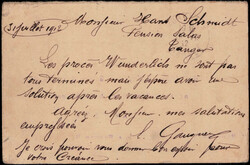 31 juillet 1912
Monsieur Hans Schmidt
Pension Salas
Tanger
Les procès Wunderlich ne sont pas
tous terminés mais j'espère avoir une
solution après les vacances.
Agréez Monsieur mes salutations
empressées
Je crois pouvoir vous donner un espoir pour
votre Créance